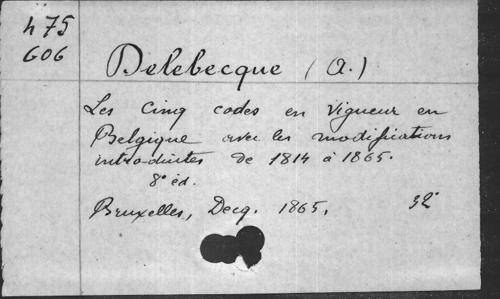 475
606
Delebecque (A.)
Les Cinq codes en vigueur en
Belgique avec les modifications
introduites de 1814 à 1865.
8e éd.
Bruxelles, Decq. 1865. 32°